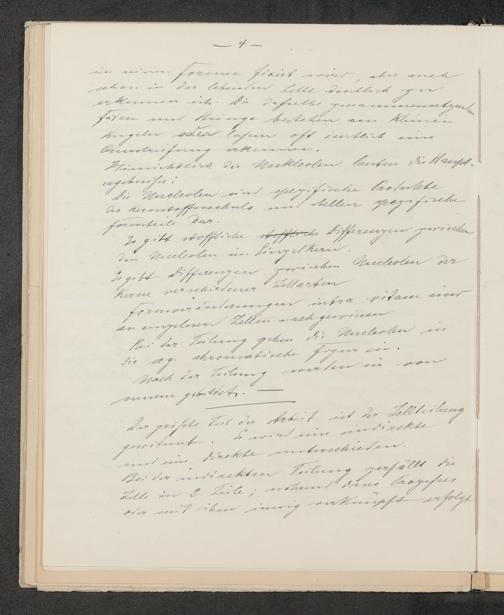 — 4 —
in seinen Formen fixirt wird, aber auch
schon in der lebenden Zelle deutlich zu
erkennen ist. Die dasselbe zusammensetzenden
Fäden und Stränge bestehen aus kleinen
Kugeln oder lassen oft deutlich eine
Querstreifung erkennen.
Hinsichtlich der Nucleolen lauten die Haupt-
ergebnisse:
Die Nucleolen sind spezifische Produkte
des Kernstoffwechsels und stellen spezifische
Formteile dar.
Es gibt stoffliche Differenzen zwischen
den Nucleolen im Einzelkern.
Es gibt Differenzen zwischen Nucleolen der
Kerne verschiedener Zellarten
Formveränderungen intra vitam sind
an einzelnen Zellen nachgewiesen
Bei der Teilung gehen die Nucleolen in
die sog. chromatische Figur ein.
Nach der Teilung werden sie von
neuem gebildet. —
Der größte Teil der Arbeit ist der Zellteilung
gewidmet. Es wird eine indirekte
und eine direkte unterschieden.
Bei der indirekten Teilung zerfällt die
Zelle in 2 Teile; während dieses Prozesses
oder mit ihm innig verknüpft erfolgt